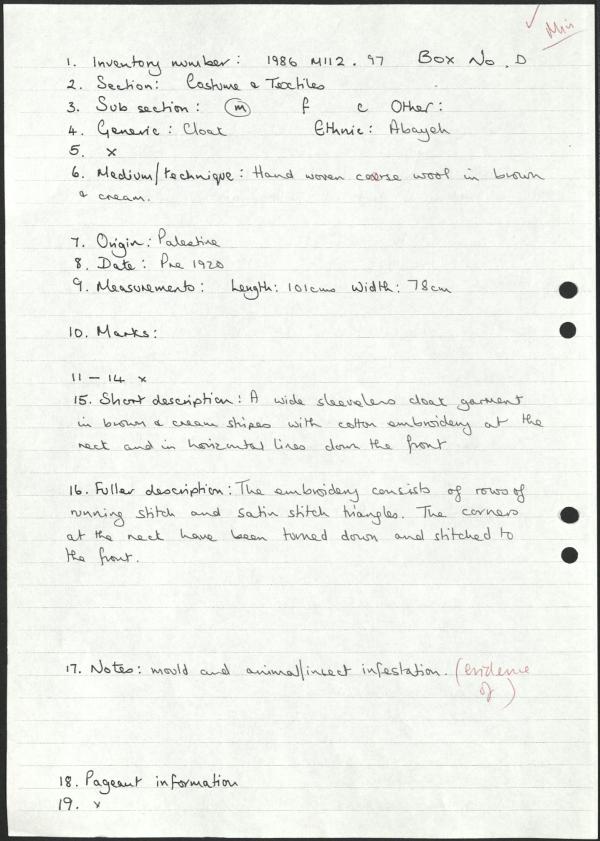 ✓ Min
1. Inventory number: 1986 M112.97 Box No. D
2. Section: Costume & Textiles
3. Sub section: (m) f c Other:
4. Generic: Cloak Ethnic: Abayeh
5. x
6. Medium/technique: Hand woven coarse wool in brown
& cream.
7. Origin: Palestine
8. Date: Pre 1920
9. Measurements: Length: 101cms Width: 78cm
10. Marks:
11 – 14 x
15. Short description: A wide sleeveless cloak garment
in brown & cream stripes with cotton embroidery at the
neck and in horizontal lines down the front
16. Fuller description: The embroidery consists of rows of
running stitch and satin stitch triangles. The corners
at the neck have been turned down and stitched to
the front.
17. Notes: mould and animal/insect infestation. (evidence
of)
18. Pageant information
19. x